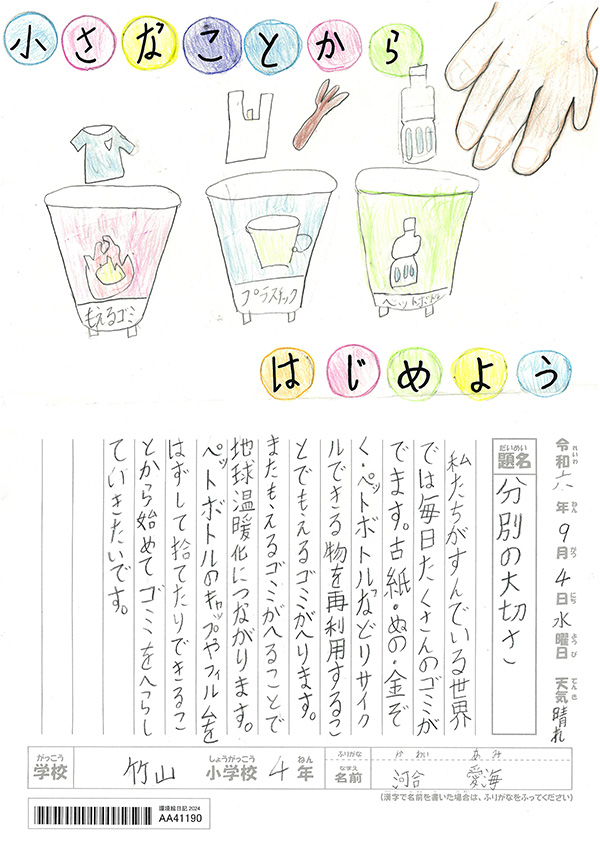 小さなことから
もえるゴミ
プラスチック
ペットボトル
はじめよう
令和六年9月4日水曜日 天気晴れ
れいわ ねん がつ にち ようび てんき
だいめい
題名 分別の大切さ
私たちがすんでいる世界
では毎日たくさんのゴミが
でます。古紙・ぬの・金ぞ
く・ペットボトルなどリサイク
ルできる物を再利用するこ
とでもえるゴミがへります。
またもえるゴミがへることで
地球温暖化につながります。
ペットボトルのキャップやフィルムを
はずして捨てたりできるこ
とから始めてゴミをへらし
ていきたいです。
がっこう しょうがっこう ねん
学校 竹山 小学校 4年
ふりがな かわい あみ
なまえ
名前 河合 愛海
(漢字で名前を書いた場合は、ふりがなをふってください)
環境絵日記2024
AA41190